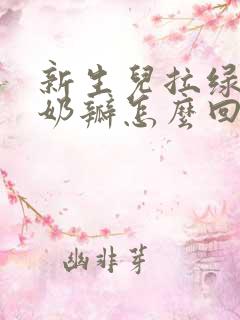 新生兒拉绿
奶瓣怎麼回
幽非芽